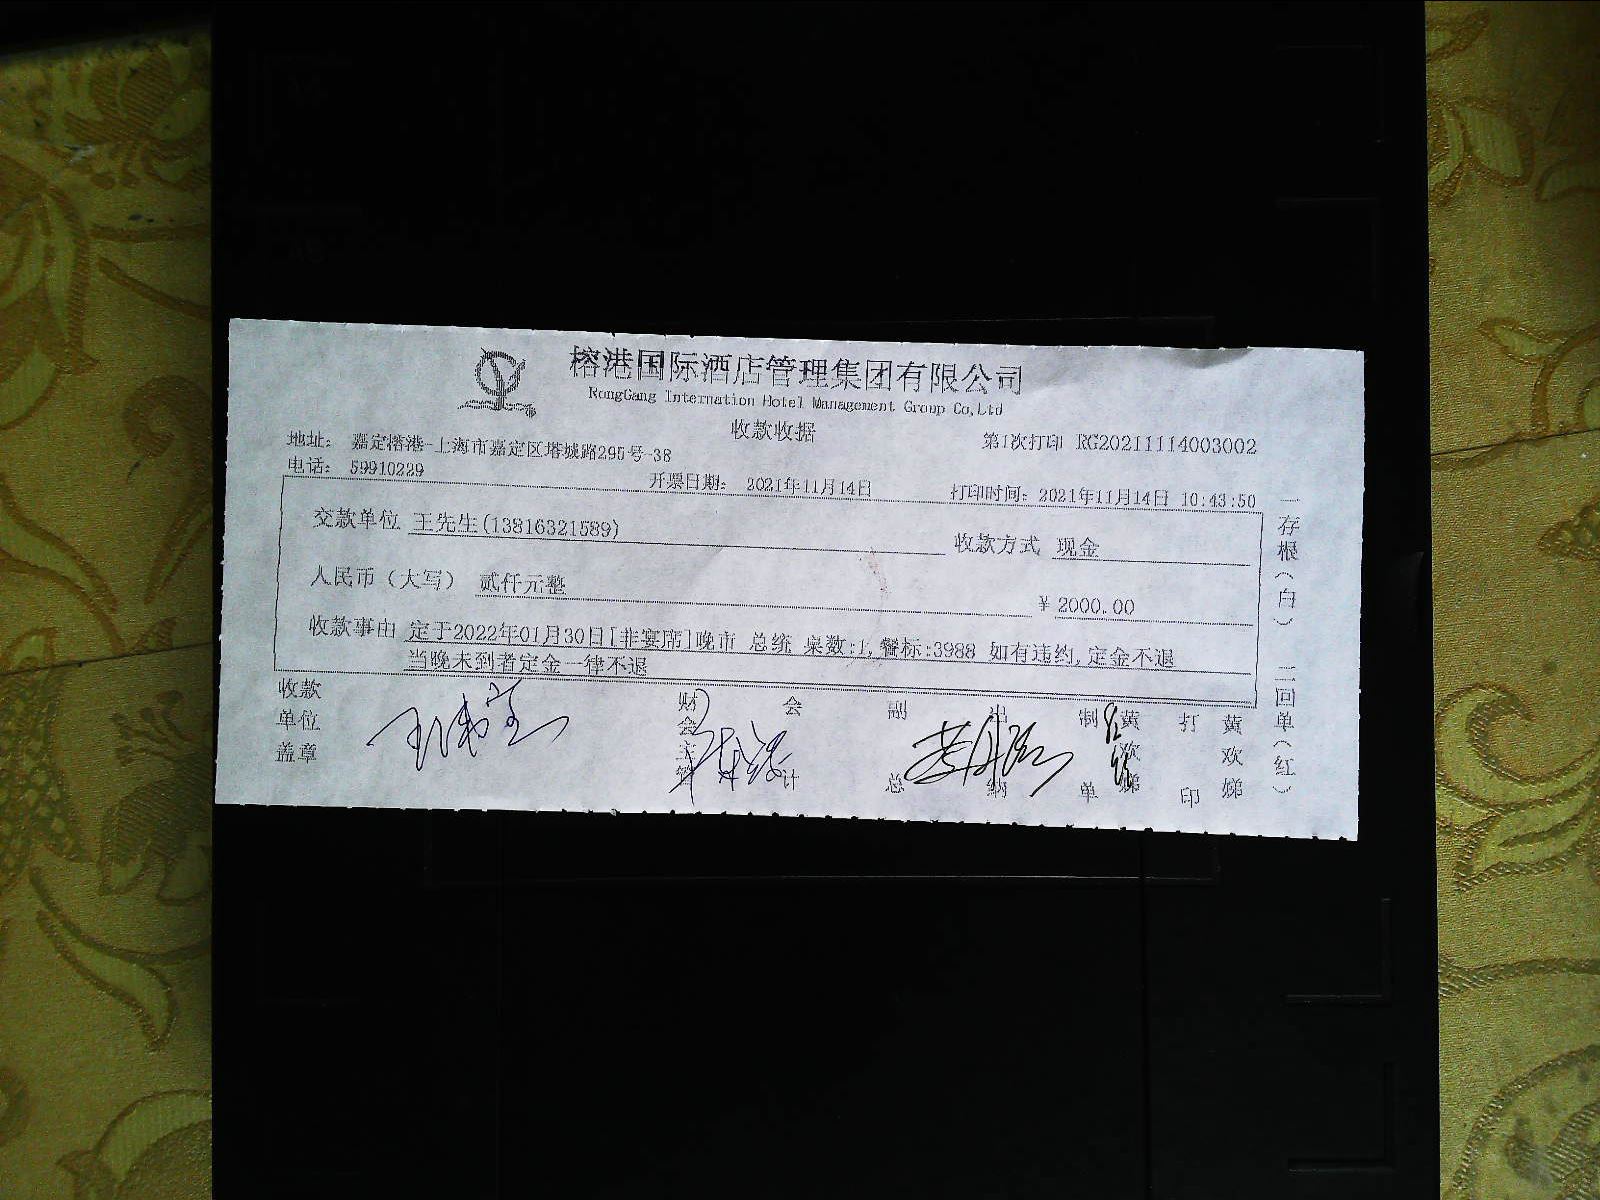 榕港国际酒店管理集团有限公司
RongGang Internation Hotel Management Group Co,Ltd
收款收据
地址： 嘉定榕港-上海市嘉定区塔城路295号-38 第1次打印 RG20211114003002
电话： 59910229 开票日期： 2021年11月14日 打印时间：2021年11月14日 10:43:50
交款单位 王先生(13816321589) 收款方式 现金
人民币（大写） 贰仟元整 ¥ 2000.00
收款事由 定于2022年01月30日[非宴席]晚市 总统 桌数:1,餐标:3988 如有违约,定金不退
当晚未到者定金一律不退
收款单位盖章 财会主管 会计 副总 出纳 制单 黄欢娣 打印 黄欢娣
一存根（白） 二回单（红）